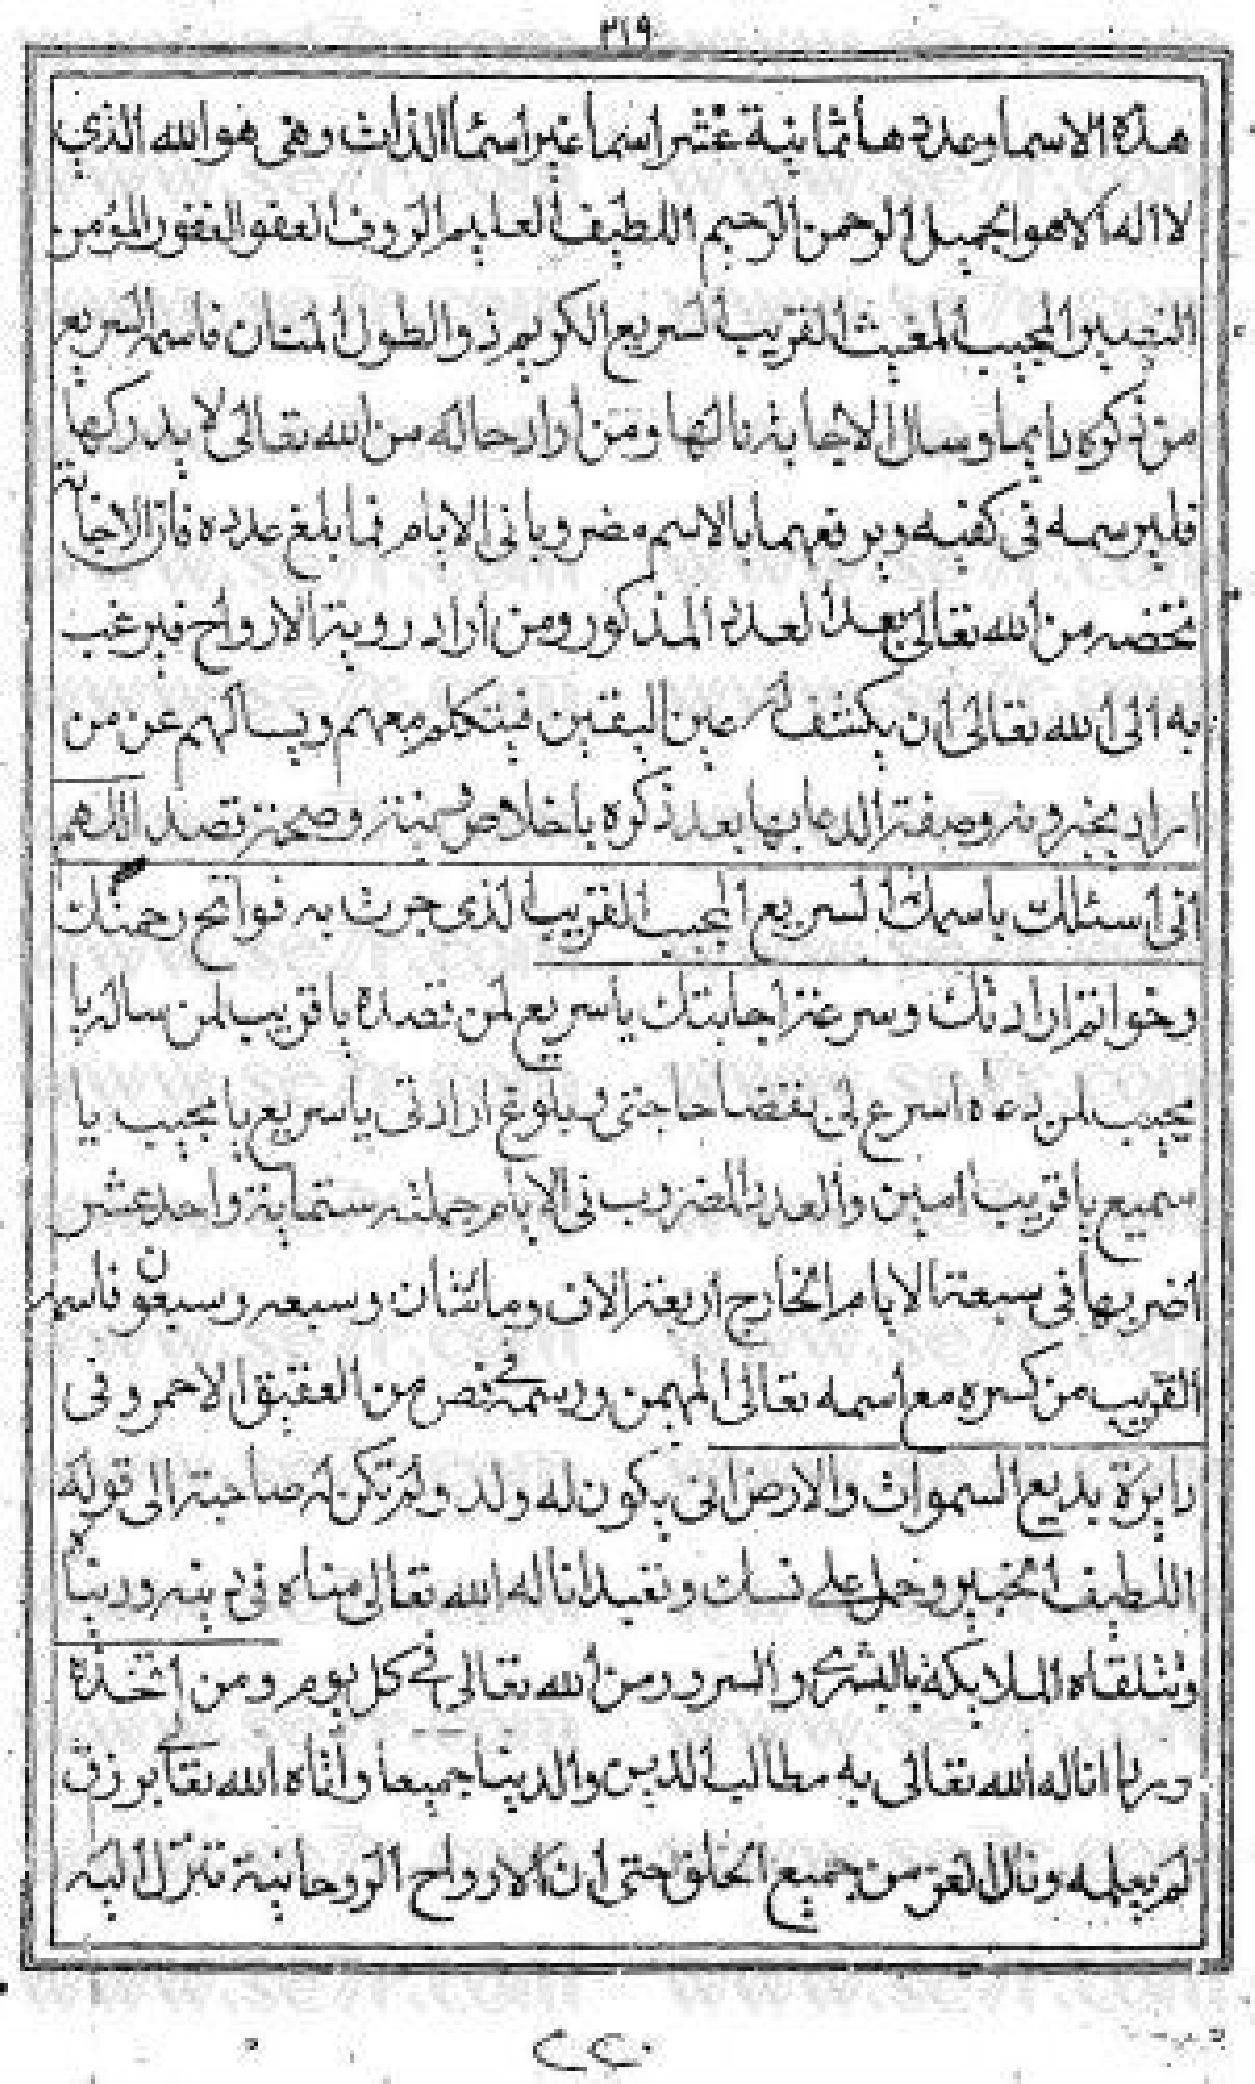 ٢١٩
هذه الاسما وعددها ثمانية عشر اسما غير اسما الذات وهى هو الله الذي
لا اله الا هو الجميل الرحمن الرحيم اللطيف العليم الروف العفو الغفور المؤمن
النصير المجيب المغيث القريب السريع الكريم ذو الطول المنان فاسمه السريع
من ذكره دايما وسال الاجابة نالها ومن اراد حاله من الله تعالى لا يدركها
فليرسمه فى كفيه ويرفعهما بالاسم مضروبا فى الايام فما بلغ عدده فان الاجابة
تحضه من الله تعالى بعد العدد المذكور ومن اراد روية الارواح فيرغب
به الى الله تعالى ان يكشف له عين اليقين فيتكلم معهم ويسالهم عن من
اراد يخبرونه وصفة الدعا بها بعد ذكره باخلاص نية وصحة قصد اللهم
انى اسئلك باسمك السريع المجيب القريب الذى جرت به فواتح رحمتك
وخواتم ارادتك وسرعة اجابتك يا سريع لمن قصده يا قريب لمن ساله يا
مجيب لمن دعاه اسرع لى بقضا حاجتى وبلوغ ارادتى يا سريع يا مجيب يا
سميع يا قريب امين والعدد المضروب فى الايام جملته ستماية واحد عشر
اضربها فى سبعة الايام الخارج اربعة الاف ومائتان وسبعه وسبعون فاسمه
القريب من كسره مع اسمه تعالى المهيمن ورسمه في فص من العقيق الاحمر وفى
دايرة بديع السموات والارض انى يكون له ولد ولم تكن له صاحبة الى قوله
اللطيف الخبير وحمل على نسك وتعبد اناله الله تعالى مناه فى دينه ودنياه
وتتلقاه الملايكة بالبشرى والسرور من الله تعالى في كل يوم ومن اتخذه
وردا اناله الله تعالى به مطالب الدين والدنيا جميعا وأتاه الله تعالى برزق
لم يعلمه ونال العز من جميع الخلق حتى ان الارواح الروحانية تنزل اليه
٢٢٠